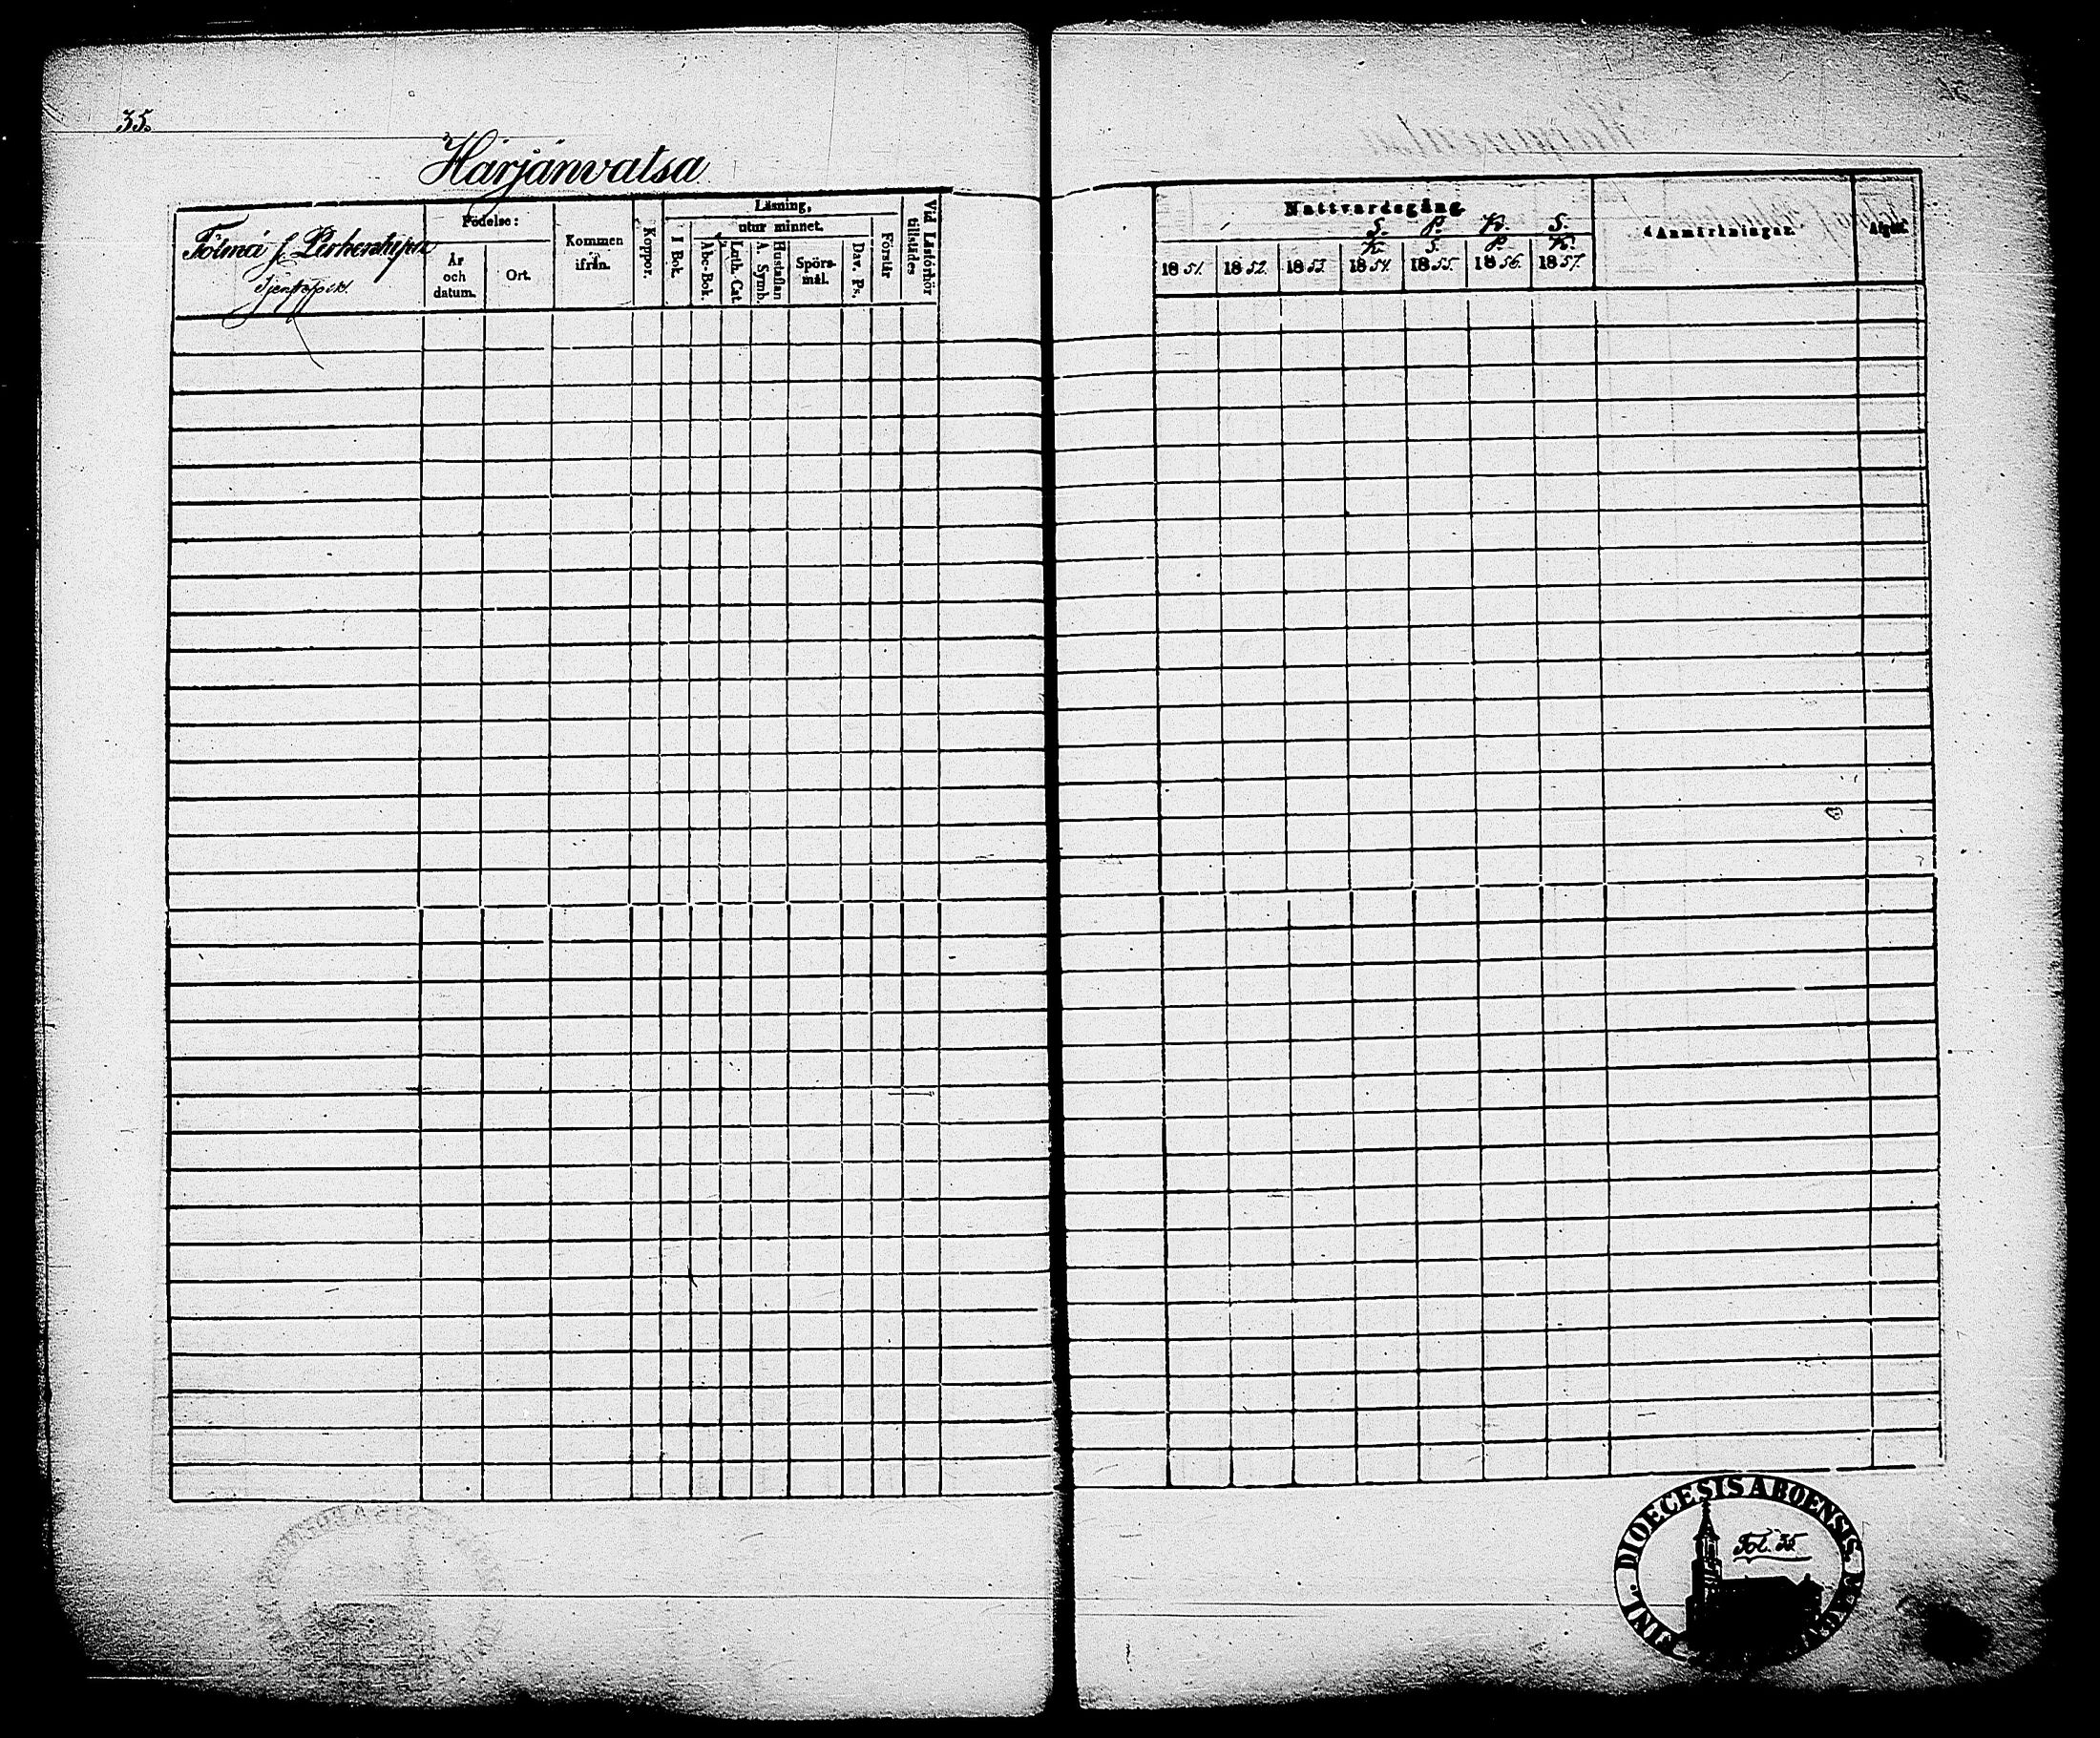 35.
Härjänvatsa
Födelse:
År
och
datum.
Ort.
Kommen
ifrån.
Koppor.
Läsning,
utur minnet.
I Bok.
Abc-Bok.
Luth. Cat.
A. Symb.
Hustaflan
Spörs-
mål.
Dav. Ps.
Förstår
Vid Läsförhör
tillstädes
Nattvardsgång
S. P. K. S.
K. S. P. K.
1851. 1852. 1853. 1854. 1855. 1856. 1857.
Anmärkningar.
Afgått.
FINL. DIOECESIS ABOENSIS. MAGN.
Fol. 35